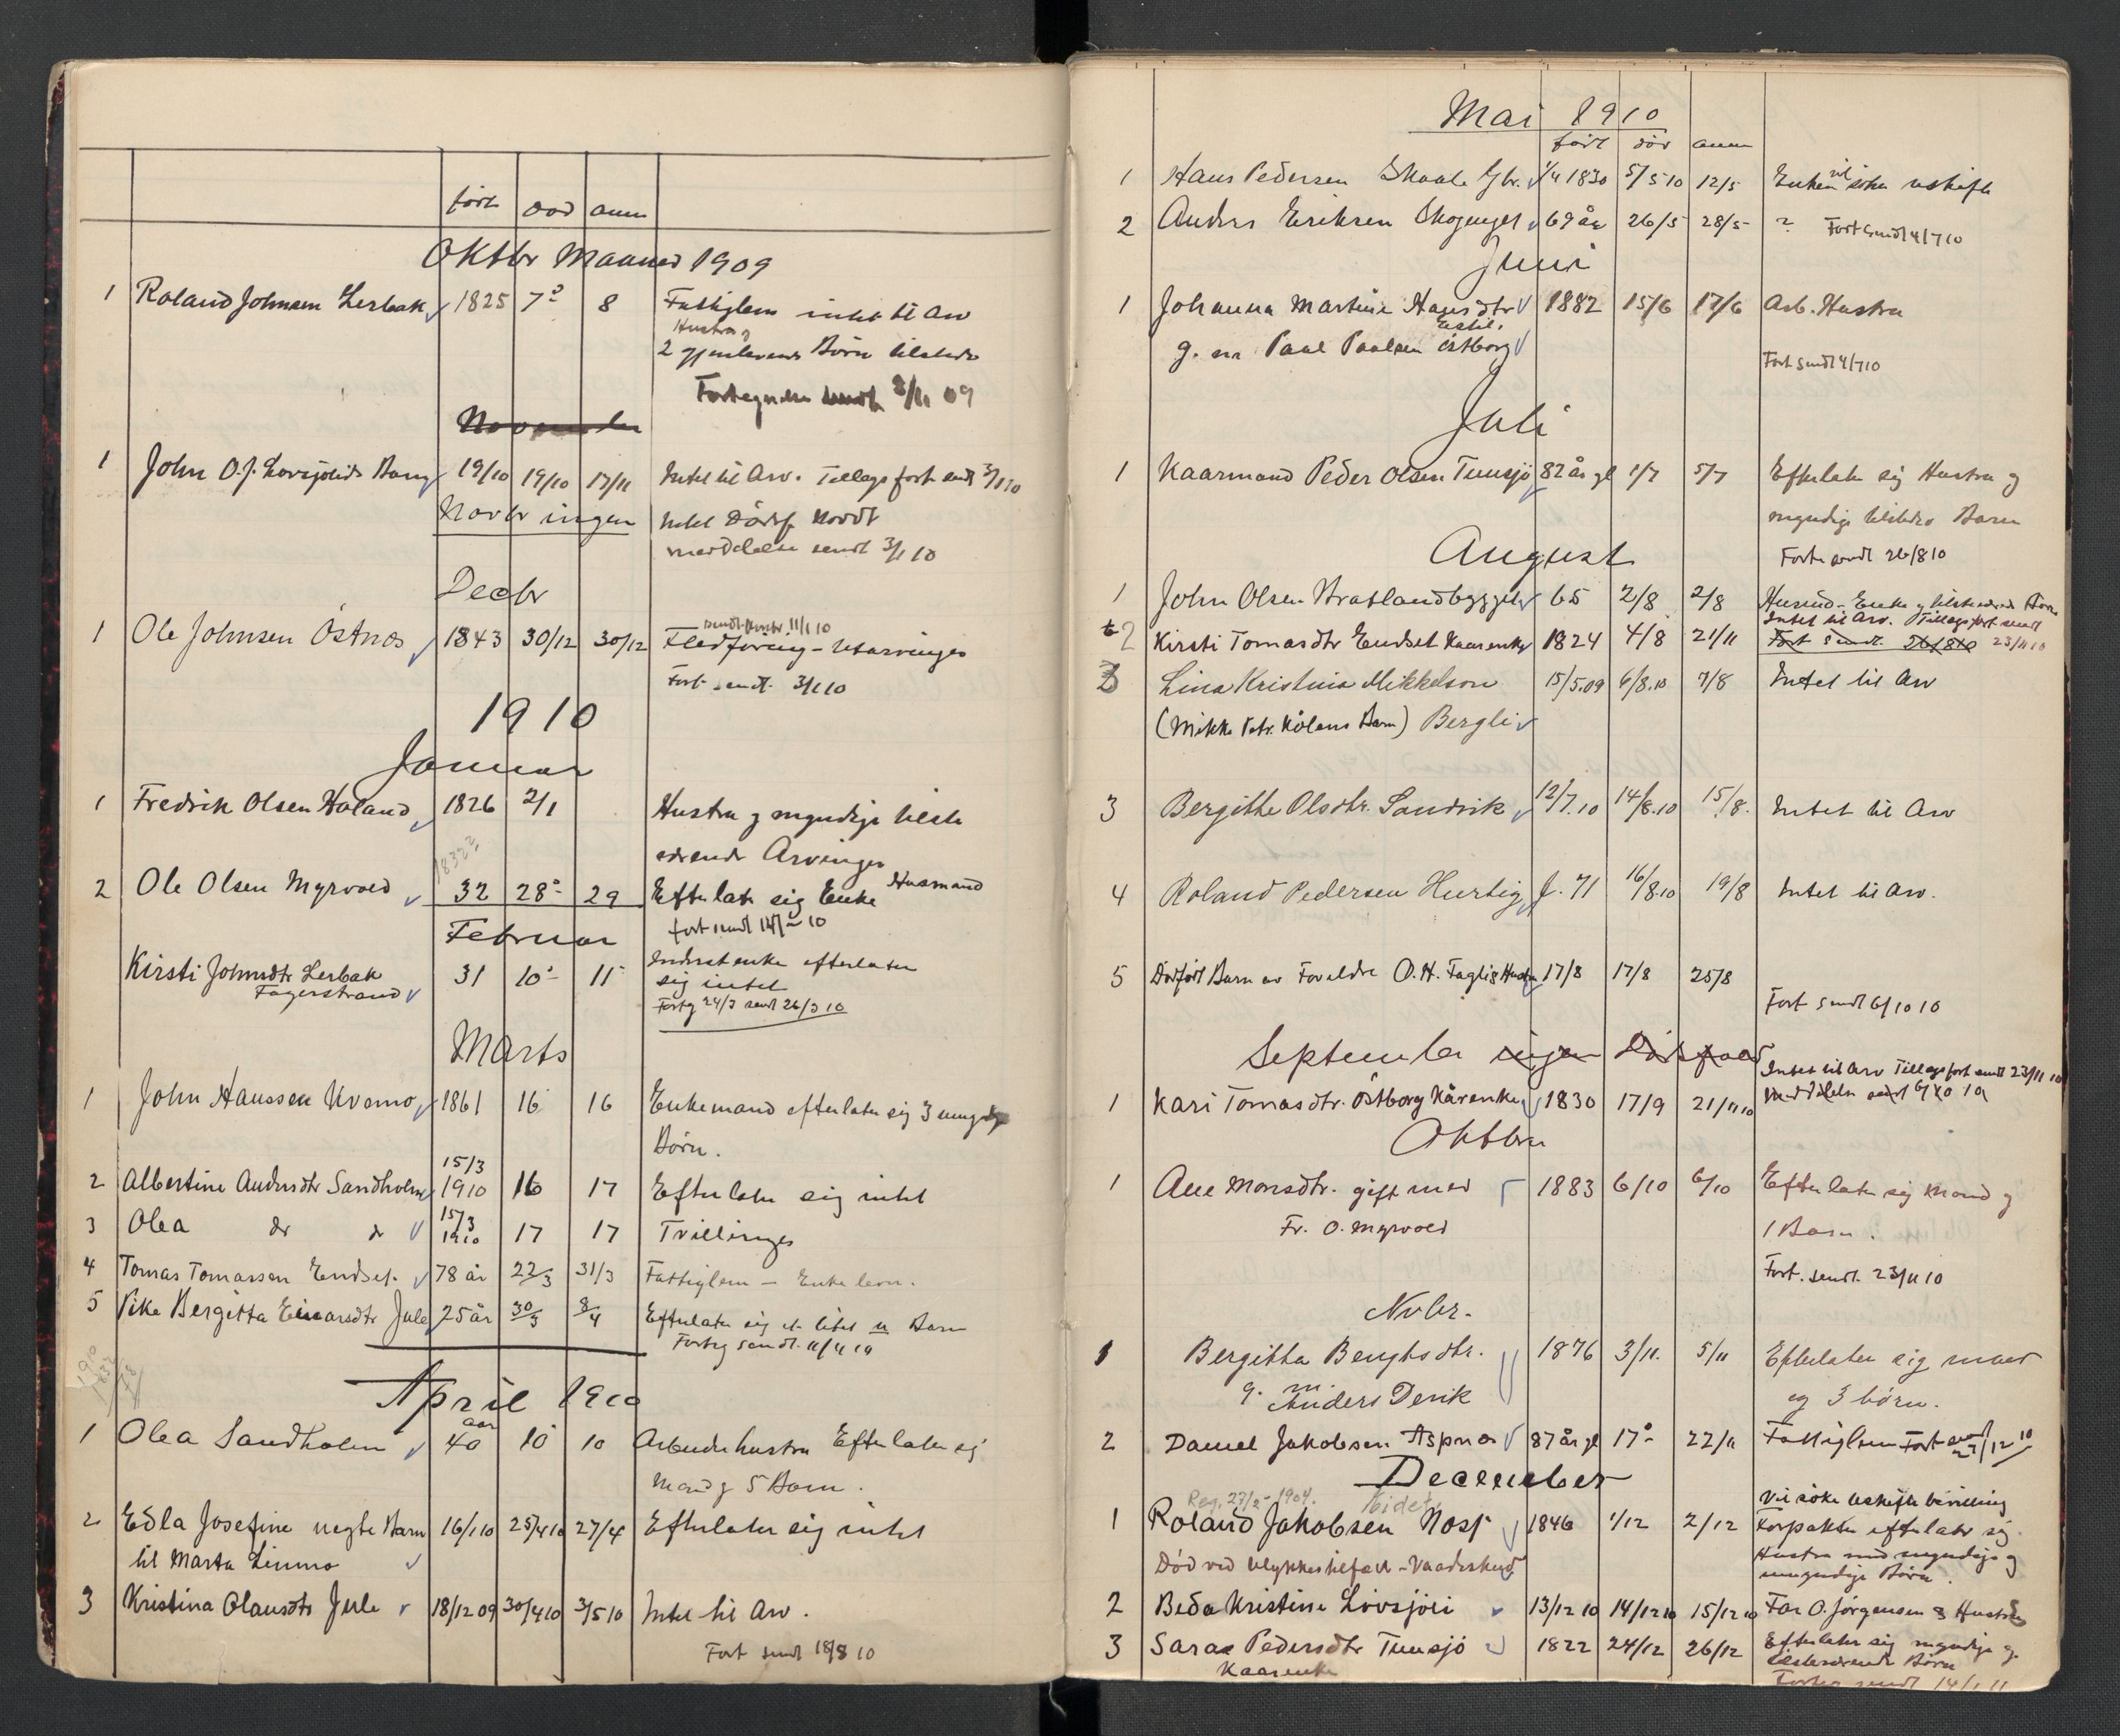 født død anm
Oktbr Maaned 1909
1 Roland Johnsen Lerbak 1825 7 8 Fattiglem intet til Arv
Hustru og
2 gjenlevende Børn tilstede
Fortegnelse sendt 3/11 09
November
1 John O.J. Lovsjølids Barn 19/10 19/10 17/11 Intet til Arv. Tillægsfort sendt 3/1 10
Novbr ingen Intet Dødsf
meddelelse sendt 3/1 10
Decbr
sendt 11/1 10
1 Ole Johnsen Østnes 1843 30/12 30/12 Fledføring - Utarvinger
Fort. sendt 3/1 10
1910
Januar
1 Fredrik Olsen Haland 1826 2/1 Hustru og myndige tilste
værende Arvinger
1832?
2 Ole Olsen Myrvold 32 28 29 Efterlater sig Enke Husmand
Fort sendt 10
Februar
Kirsti Johnsdtr Lerbak 31 10 11 enke efterlater
Fagerstrand sig intet
Fortg 24/3 sendt 26/3 10
Marts
1 John Hanssen Kvemo 1861 16 16 Enkemand efterlater sig 3 umyndige
Børn.
15/3
2 Albertine Andersdtr Sandholm 1910 16 17 Efterlater sig intet
15/3
3 Olea do do 1910 17 17 Tvillinger
4 Tomas Tomassen Endset. 78 år 22/3 31/3 Fattiglem - Enke lever.
5 Vike Bergitta Einarsdtr Jule 25 år 30/3 8/4 Efterlater sig et litet u Barn
Fortg sendt 11/4 10
April 1910
aar
1 Olea Sandholm 40 10 10 Arbeiderhustru Efterlater sig
Mand og 5 Børn.
2 Edla Josefine uegte Barn 16/1 10 25/4 10 27/4 Efterlater sig intet
til Marta Linmo
3 Kristina Olausdtr Jule 18/12 09 30/4 10 3/5 10 Intet til Arv.
Fort sendt 18/8 10
Mai 1910
født død anm
1 Hans Pedersen Skaale Gbr. 1/4 1830 5/5 10 12/5 Enken vil søke uskifte
2 Anders Eriksen Skogenget 69 år 26/5 28/5 ? Fort sendt 4/7 10
Juni
1 Johanna Martine Hansdtr 1882 15/6 17/6 Arb. Hustru
g. m Paul Paulsen Østborg
Fort sendt 4/7 10
Juli
1 Kaarmand Peder Olsen Tunsjø 82 år gl 1/7 5/7 Efterlater sig Hustru og
myndige tilstedev Barn
Forte sendt 26/8 10
August
1 John Olsen Kvatlandbygget 65 2/8 2/8 Husmd - Enke og tilstedeværende Børn
Intet til Arv. Tillægsfort sendt
2 Kirsti Tomasdtr Endset Kaarenke 1824 4/8 21/11 Fort sendt 26/8 10 23/11 10
Lina Kristina Mikkelson 15/5.09 6/8.10 7/8 Intet til Arv
(Mikk. Petr. Kölens Barn) Bergli
3 Bergitte Olsdtr. Sandvik 12/7.10 14/8.10 15/8. Intet til Arv
4 Roland Pedersen Hurtig f. 71 16/8.10 19/8 Intet til Arv.
5 Dødfødt Barn av Foreldre O. H. Faglig Hustru 17/8 17/8 25/8
Fort sendt 6/10 10
September ingen Dødsfald
Intet til Arv Tillægsfort sendt 23/11 10
1 Kari Tomasdtr. Østborg Kårenke 1830 17/9 21/11 10 Meddelelse sendt 6/10 10
Oktbr
1 Ane Monsdtr. gift med 1883 6/10 6/10 Efterlater sig Mand og
Fr. O. Myrvold 1 Barn.
Fort. sendt. 23/11 10
Nvbr.
1 Bergitta Bengtsdtr. 1876 3/11. 5/11 Efterlater sig mand
g. m. Anders Derik og 3 børn.
2 Daniel Jakobsen Aspnes 87 år gl 17 22/11 Fattiglem Fort sendt 27/12 10
December
Reg. 27/2 - 1904.
Vil søke uskifte bevilling
1 Roland Jakobsen Nosf 1846 1/12 2/12 Forpakter efterlater sig
Død ved Ulykkestilfæld - Vaadeskud Hustru med myndige og
umyndige Børn.
2 Beda Kristine Lovsjøli 13/12 10 14/12 10 15/12 10 Far O. Jørgensen & Hustru
3 Sara Pedersdtr Tunsjø 1822 24/12 26/12 Efterlater sig myndige og
Kaarenke tilstedeværende Børn
Forteg sendt 14/1 11